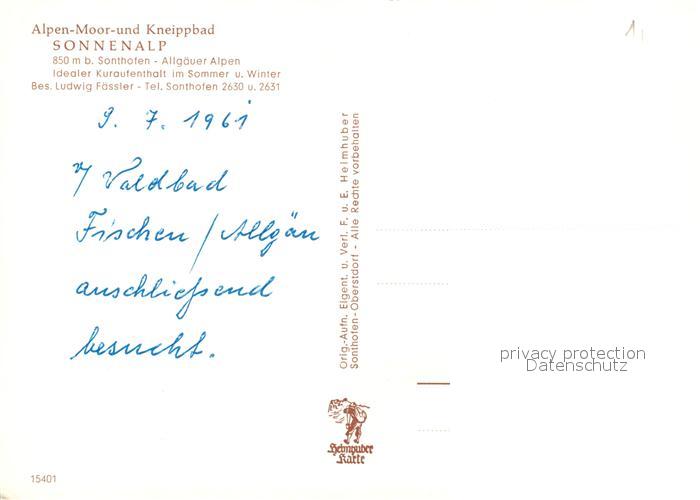 Alpen-Moor-und Kneippbad
SONNENALP
850 m b. Sonthofen - Allgäuer Alpen
Idealer Kuraufenthalt im Sommer u. Winter
Bes. Ludwig Fässler - Tel. Sonthofen 2630 u. 2631
9. 7. 1961
v/ Waldbad
Fischen / Allgäu
anschließend
besucht.
Orig.-Aufn. Eigent. u. Verl. F. u. E. Heimhuber
Sonthofen-Oberstdorf - Alle Rechte vorbehalten
privacy protection
Datenschutz
Heimhuber
Karte
15401